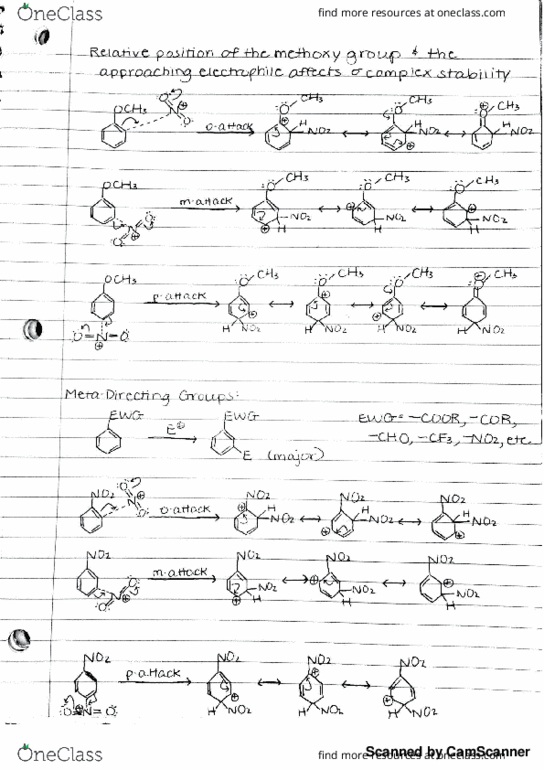 OneClass
find more resources at oneclass.com
Relative position of the methoxy group & the
approaching electrophile affects σ complex stability
OCH3 O N O o-attack O CH3 H NO2 O CH3 H NO2 O CH3 H NO2
OCH3 O N O m-attack O CH3 NO2 H O CH3 NO2 H O CH3 NO2 H
OCH3 O=N=O p-attack O CH3 H NO2 O CH3 H NO2 O CH3 H NO2 O CH3 H NO2
Meta-Directing Groups:
EWG E⊕ EWG E (major)
EWG= -COOR, -COR,
-CHO, -CF3, -NO2, etc.
NO2 O N O o-attack NO2 H NO2 NO2 H NO2 NO2 H NO2
NO2 O N O m-attack NO2 NO2 H NO2 NO2 H NO2 NO2 H
NO2 O=N=O p-attack NO2 H NO2 NO2 H NO2 NO2 H NO2
OneClass
find more resources at oneclass.com
Scanned by CamScanner